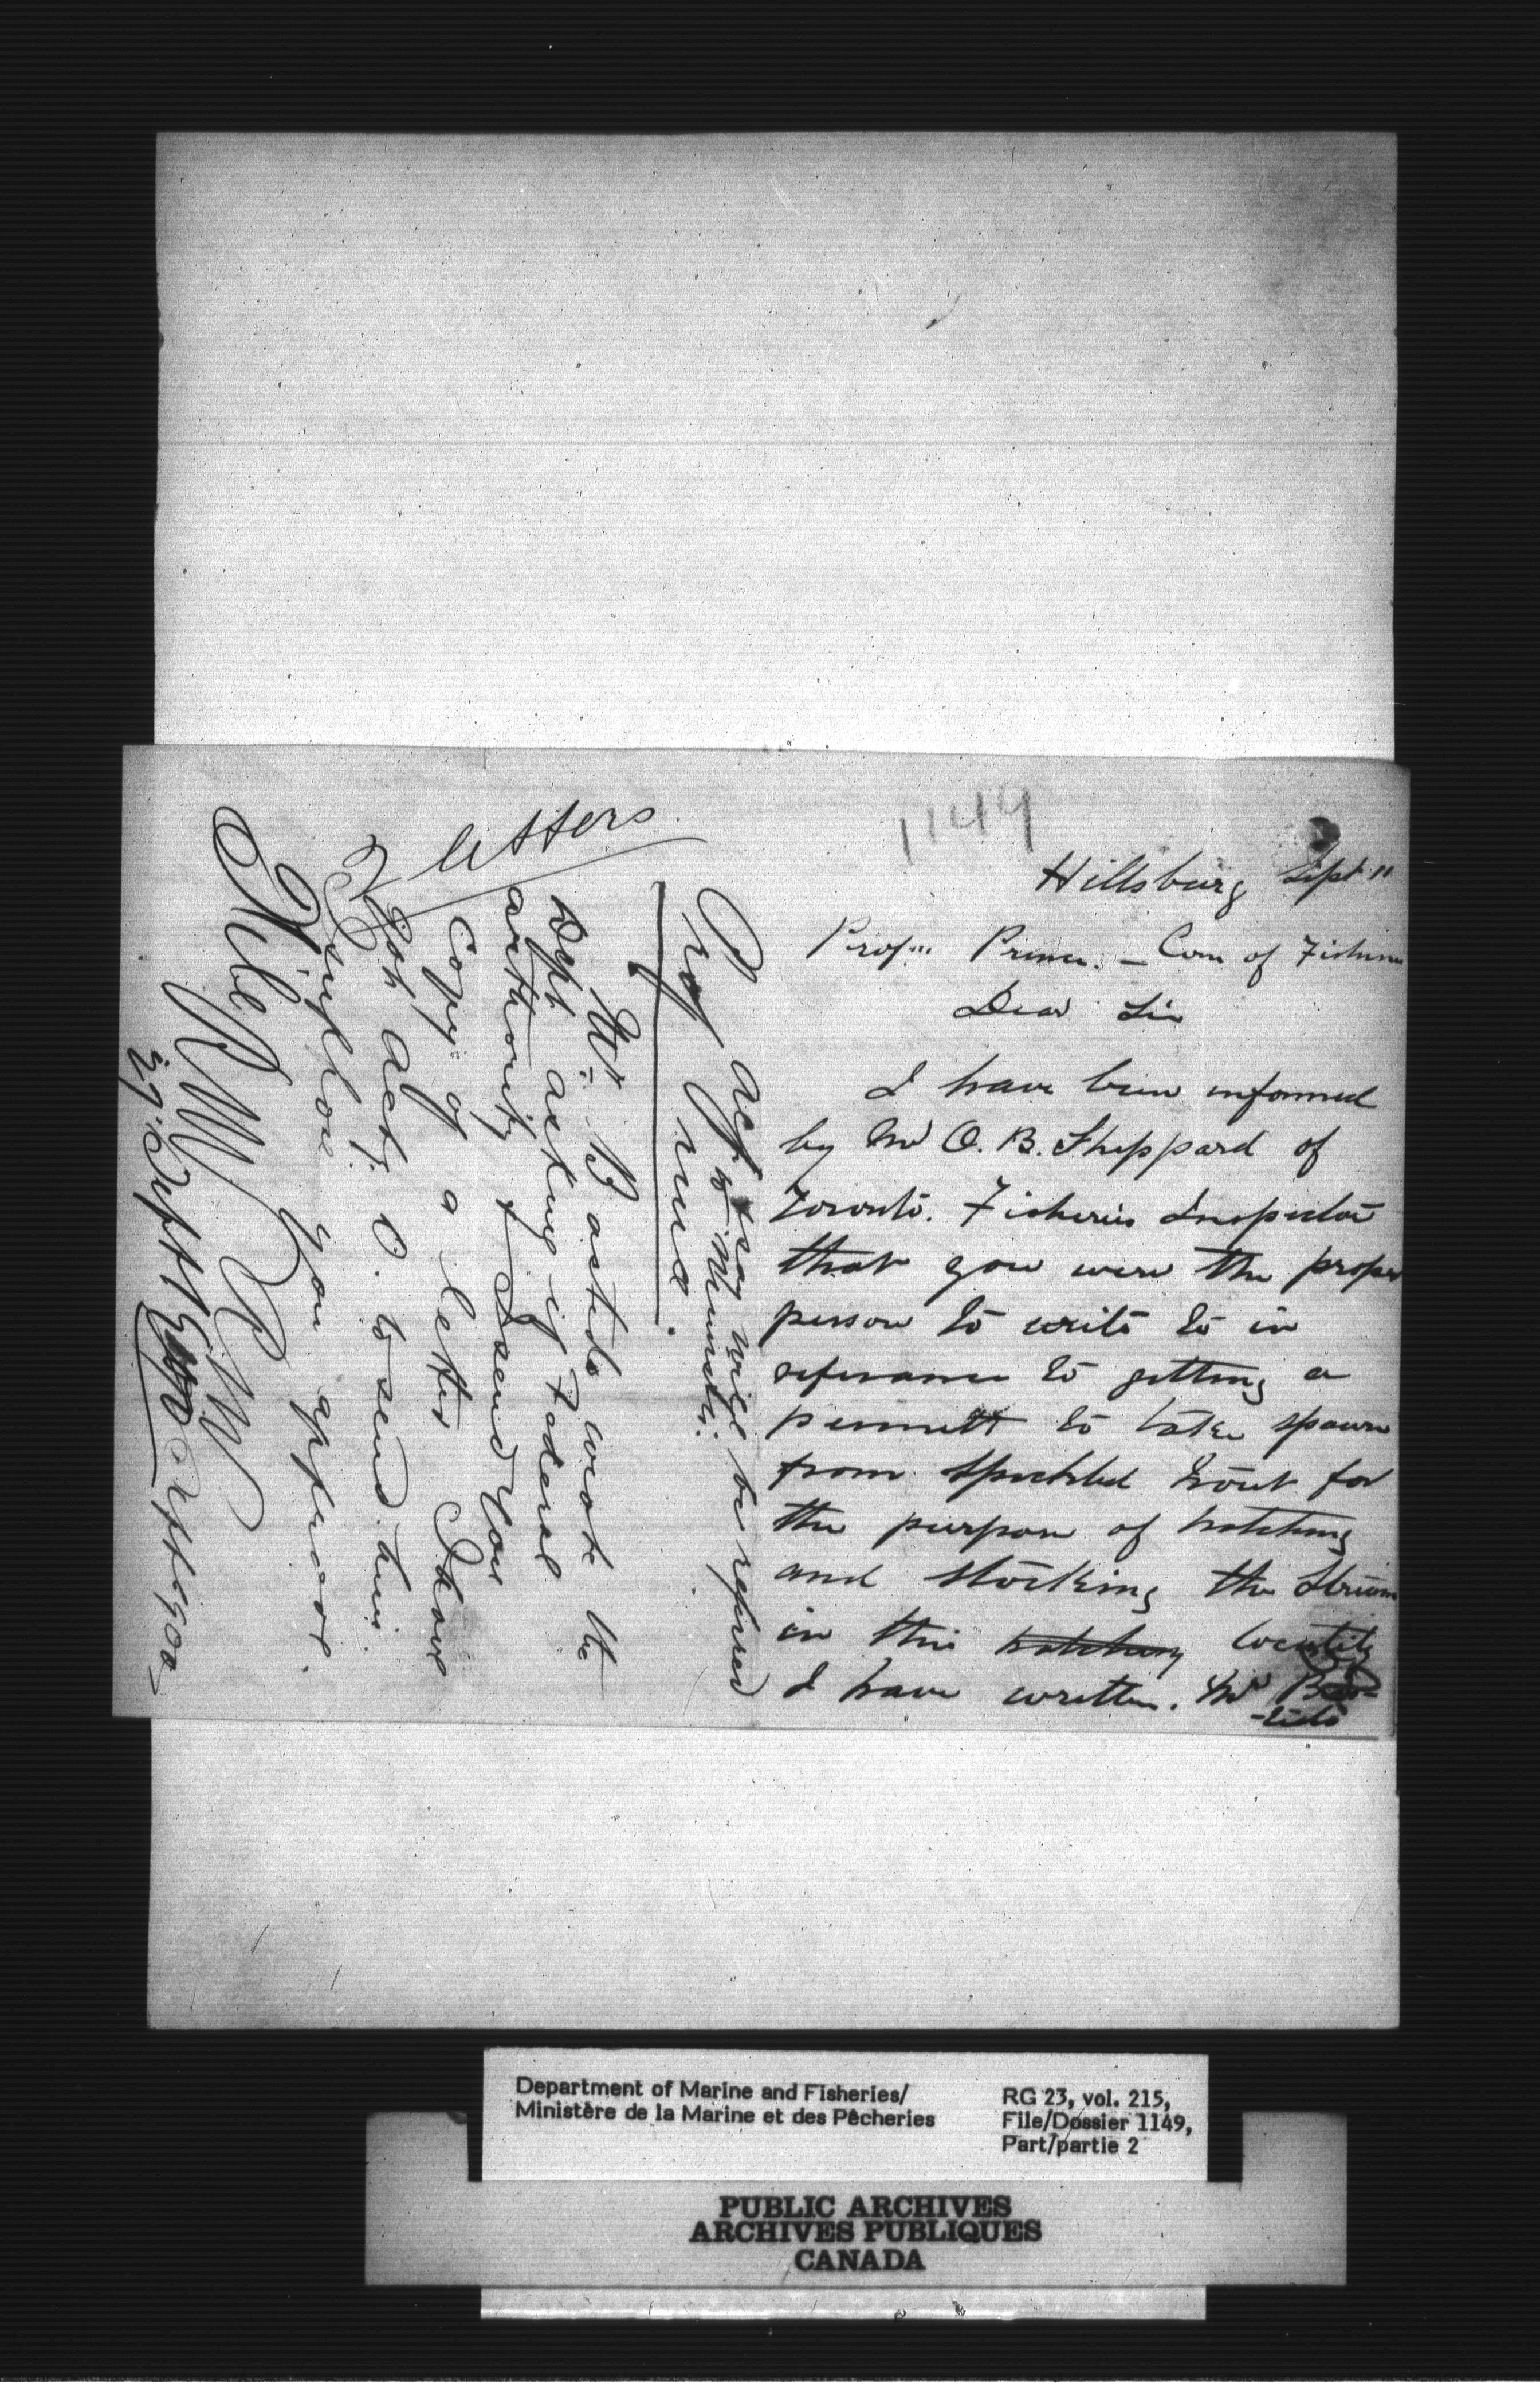 1149
Hillsburg Sept 11
Prof... Prince. — Com of Fisheries
Dear Sir
I have been informed
by Mr O. B. Sheppard of
Toronto. Fisheries Inspector
that you were the proper
person to write to in
referance to getting a
permitt to take spawn
from speckled trout for
the purpose of hatching
and stocking the Streams
in this hatchery locality
I have written. Mr Bas-
-tido
Prof Prince
Ack & say will be referred
to Minister.
2 letters
Mr B astido wrote the
Dept asking if Federal
authority & I send you
copy of a letter I have
for Acty. O. to send him.
if you approve.
File
Sept 1900
Department of Marine and Fisheries/
Ministère de la Marine et des Pêcheries
RG 23, vol. 215,
File/Dossier 1149,
Part/partie 2
PUBLIC ARCHIVES
ARCHIVES PUBLIQUES
CANADA